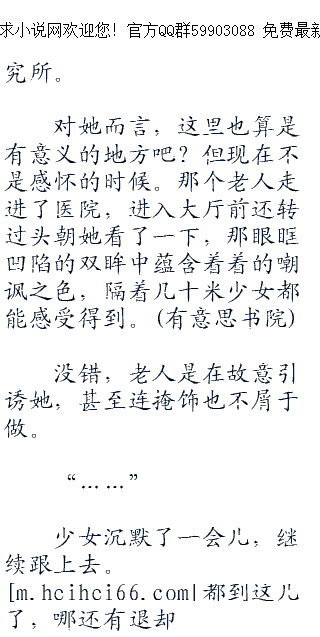 求小说网欢迎您！官方QQ群59903088 免费最新
究所。
对她而言，这里也算是
有意义的地方吧？但现在不
是感怀的时候。那个老人走
进了医院，进入大厅前还转
过头朝她看了一下，那眼眶
凹陷的双眸中蕴含着着的嘲
讽之色，隔着几十米少女都
能感受得到。(有意思书院)
没错，老人是在故意引
诱她，甚至连掩饰也不屑于
做。
“……”
少女沉默了一会儿，继
续跟上去。
[m.hcihci66.com|都到这儿
了，哪还有退却